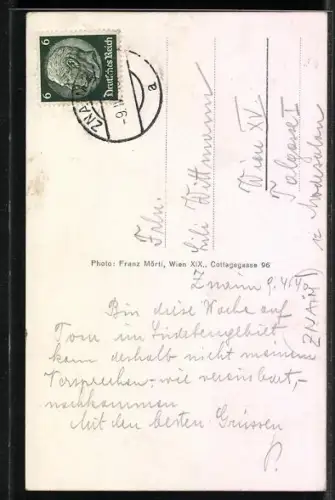 6 6
Deutsches Reich
ZNAIM
-9. II
a
Frln.
Lili Wittmann
Wien XV.
Talgasse 1
Modesalon
Photo: Franz Mörtl, Wien XIX., Cottagegasse 96
Znaim 9.
(ZNAIM)
Bin diese Woche auf
Tour im Sudetengebiet
kann deshalb nicht meinem
Versprechen - wie vereinbart, -
nachkommen
Mit den besten Grüssen